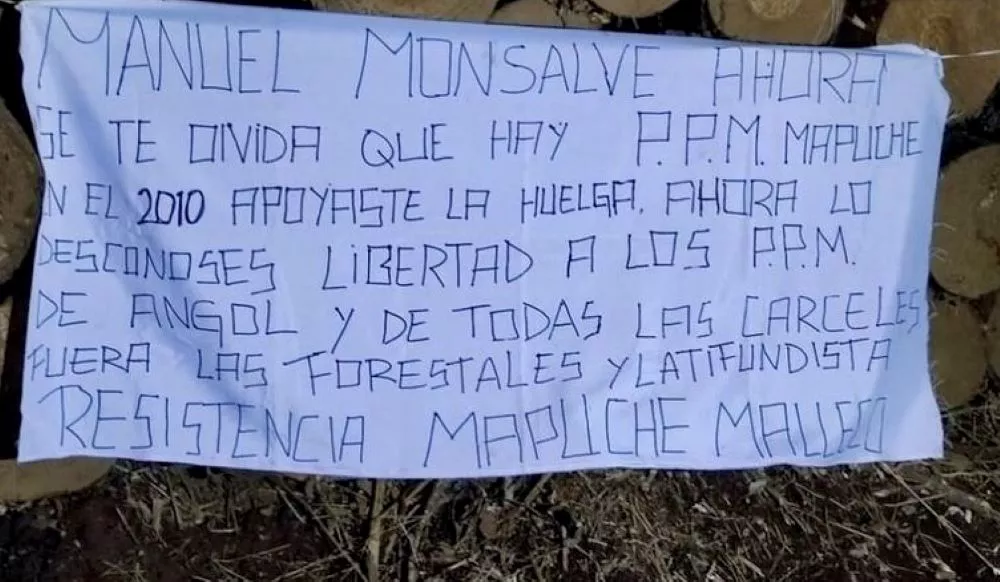 MANUEL MONSALVE AHORA
SE TE OLVIDA QUE HAY P.P.M. MAPUCHE
EN EL 2010 APOYASTE LA HUELGA. AHORA LO
DESCONOSES LIBERTAD A LOS P.P.M.
DE ANGOL Y DE TODAS LAS CARCELES
FUERA LAS FORESTALES Y LATIFUNDISTA
RESISTENCIA MAPUCHE MALLECO